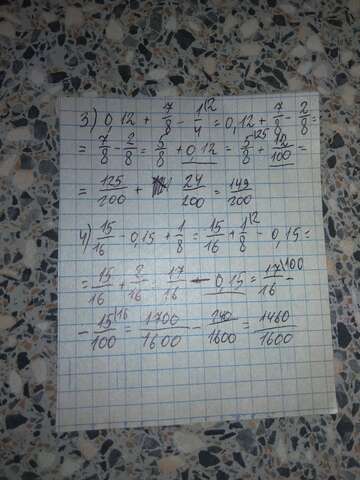 3.) 0,12 + 7/8 - 1/4 |2 = 0,12 + 7/8 - 2/8 =
= 7/8 - 2/8 = 5/8 + 0,12 = 5/8 |25 + 12/100 =
= 125/200 + 24/200 = 149/200
4.) 15/16 - 0,15 + 1/8 = 15/16 + 1/8 |2 - 0,15 =
= 15/16 + 2/16 = 17/16 - 0,15 = 17/16 |100 -
- 15/100 |16 = 1700/1600 - 240/1600 = 1460/1600